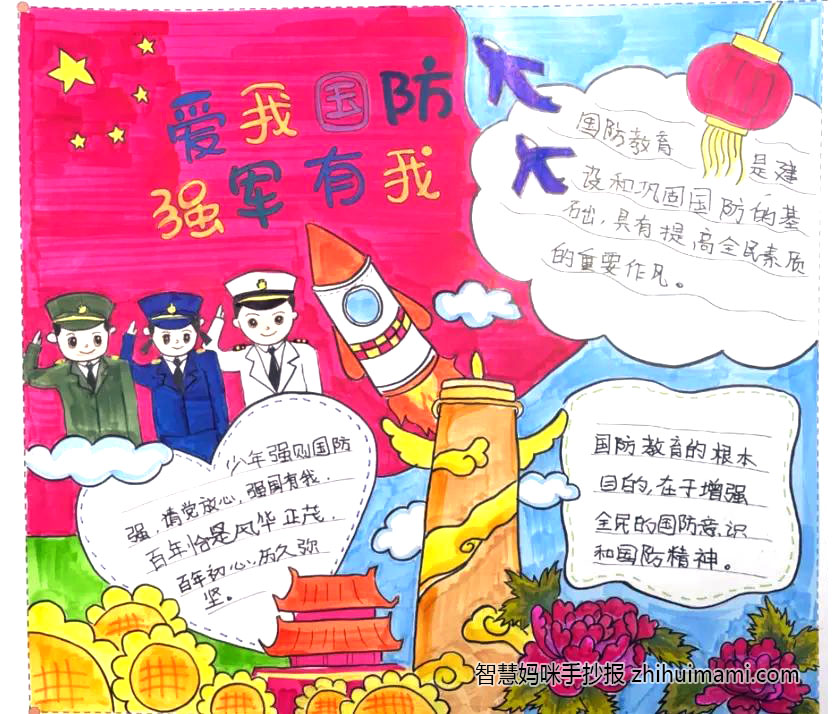 爱我国防
强军有我
国防教育 是建
设和巩固国防的基
础,具有提高全民素质
的重要作凡。
少年强则国防
强,请党放心,强国有我.
百年恰是风华正茂.
百年初心历久弥
坚。
国防教育的根本
目的,在于增强
全民的国防意识
和国防精神。
智慧妈咪手抄报 zhihuimami.com